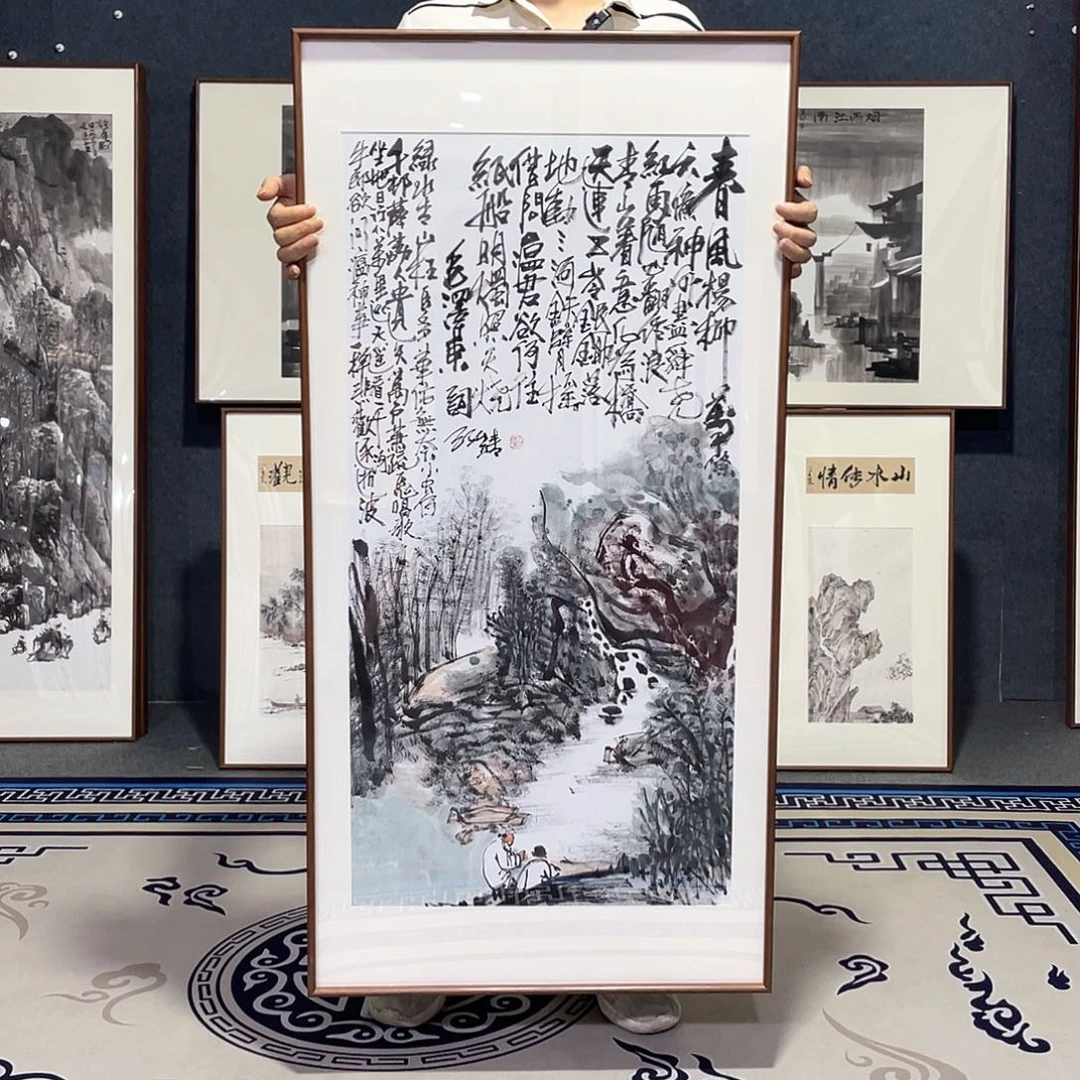 春風楊柳萬千條
六億神州盡舜尧
紅雨隨心翻作浪
青山着意化為橋
天連五岑銀鋤落
地動三河鉄臂搖
借問瘟君欲何往
紙船明燭照天燒
毛澤東詞
綠水青山枉自多華佗無奈小虫何
千村薜荔人遺矢萬户蕭疏鬼唱歌
坐地日行八萬里巡天遥看一千河
牛郎欲问瘟神事一樣悲歡逐逝波
烟雨江南
山水传情